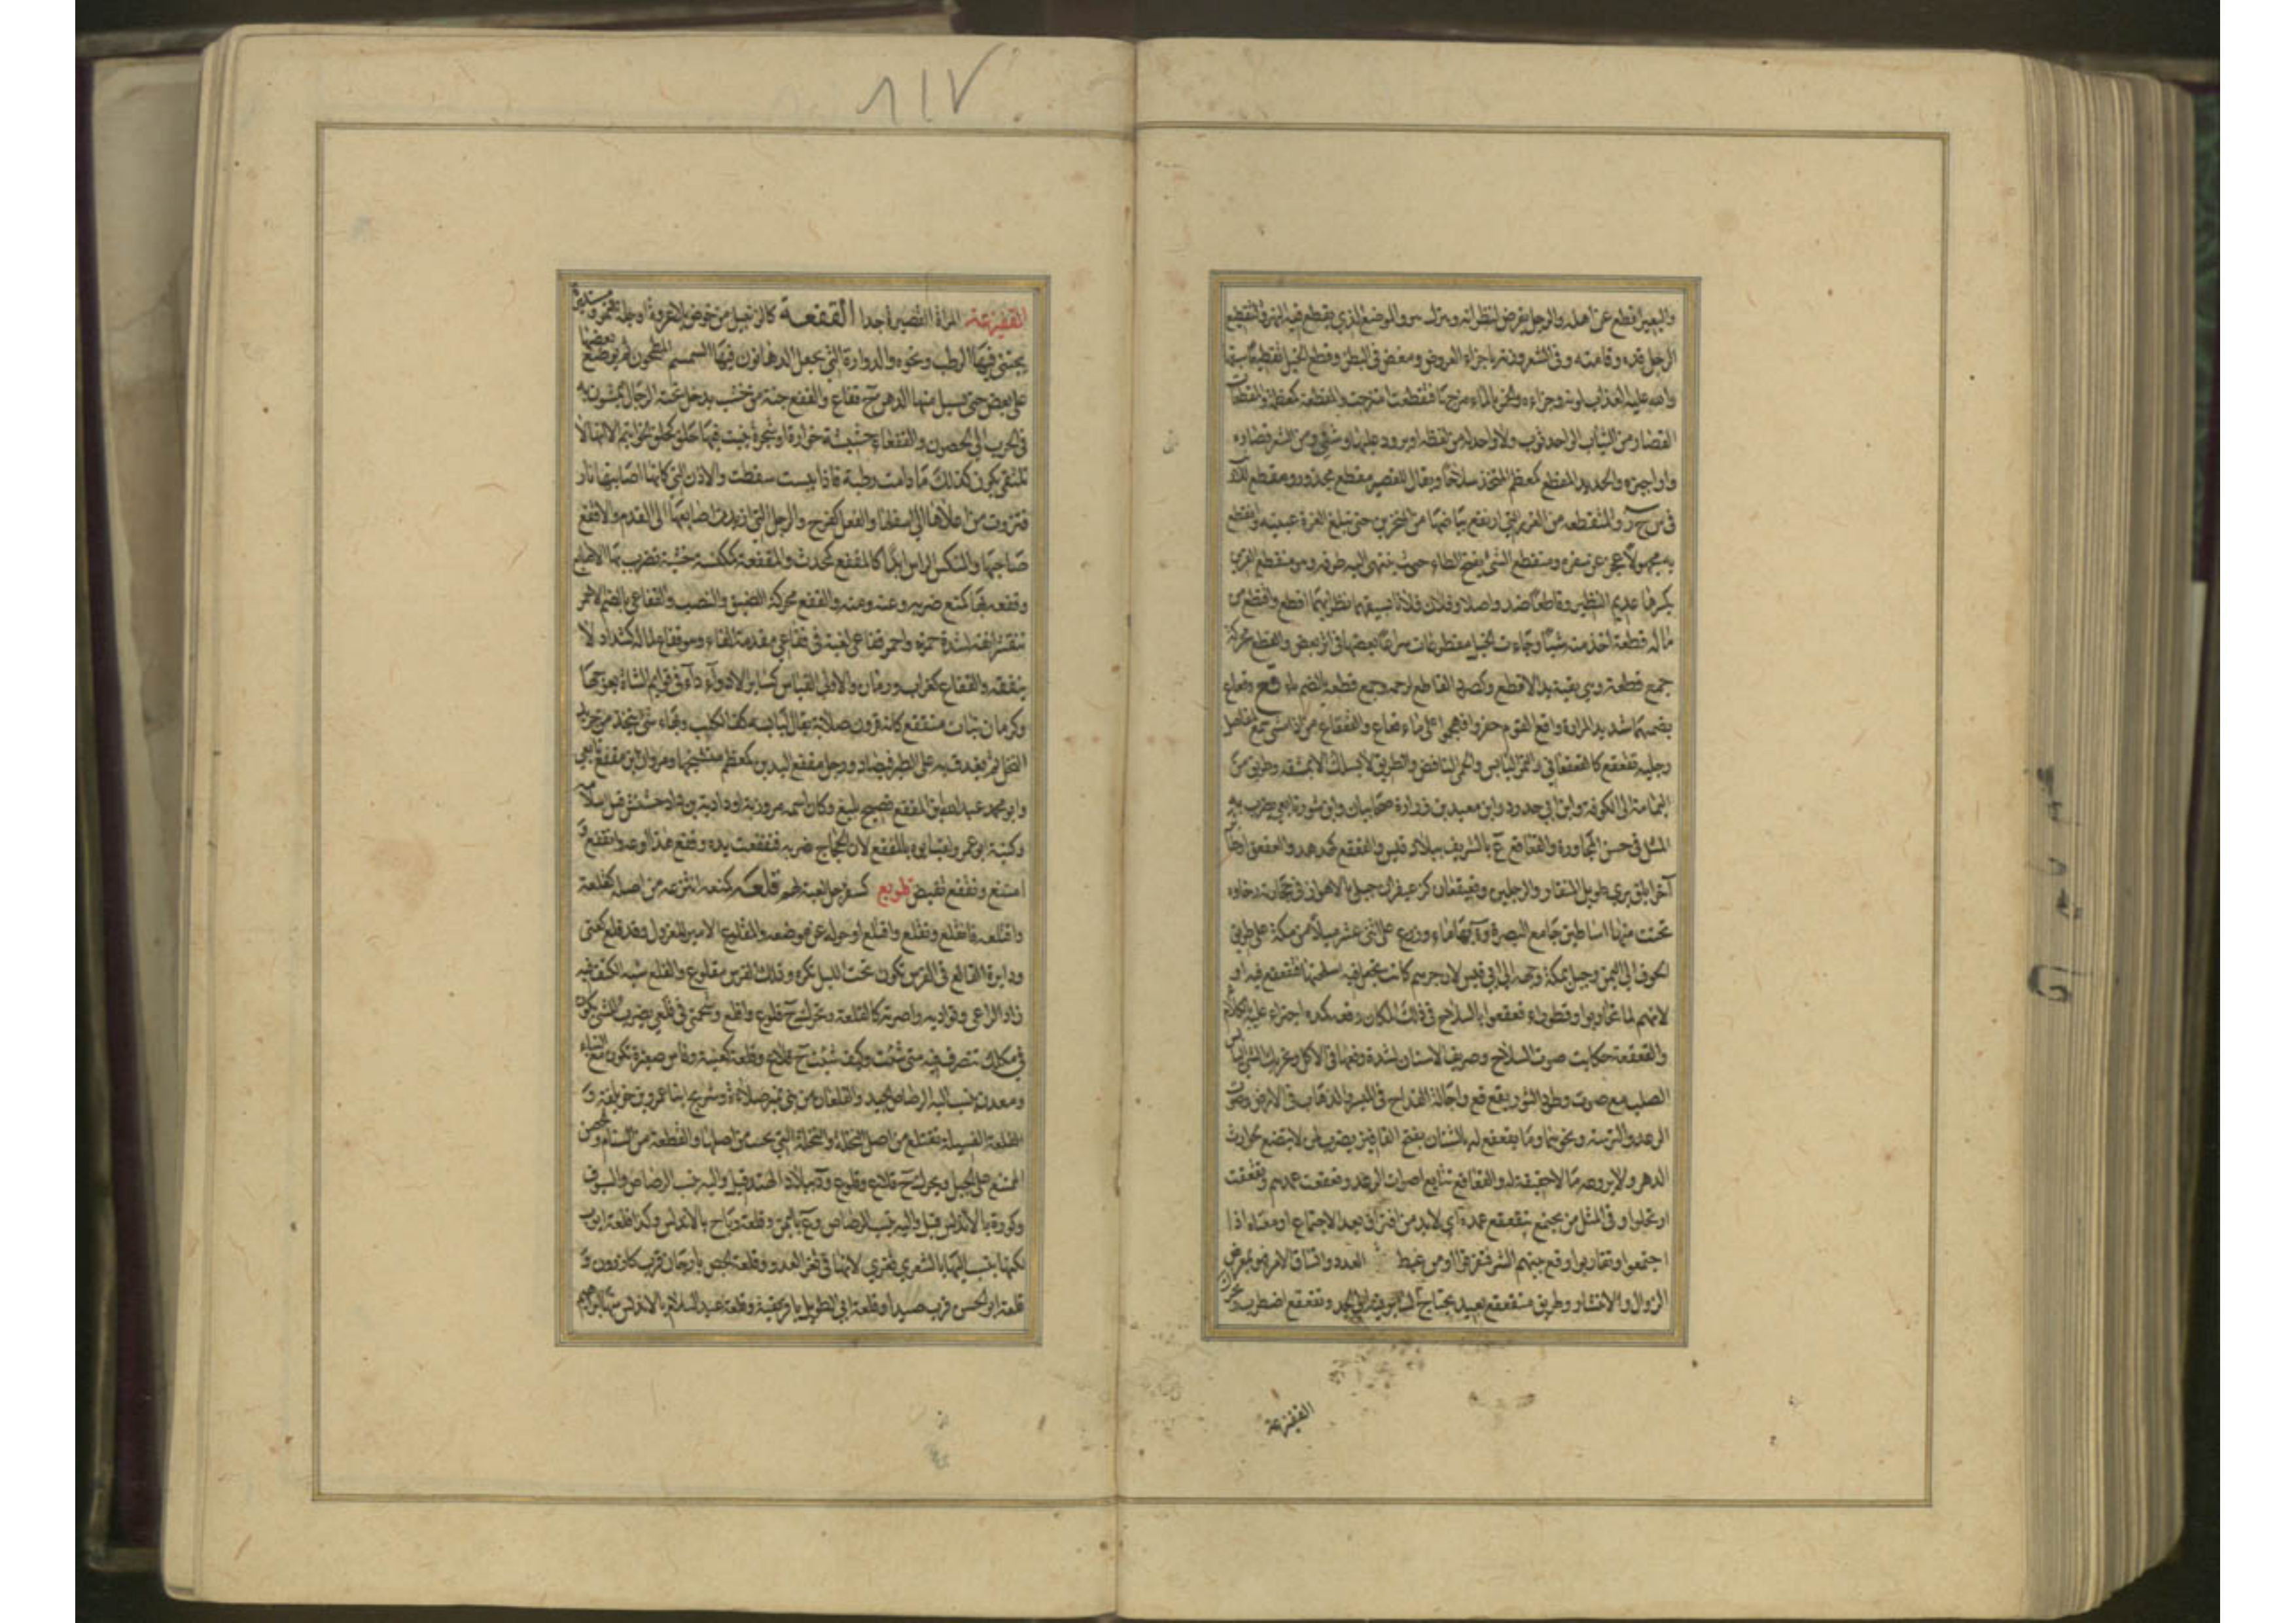 ٨١٧
والبعير قطع عن اهله والرجل يفرض لنظرائه ويترك هو والموضع الذي يقطع فيه النهر وكالتقطيع
الرجل قده وقامته وفي الشعر وزنه باجزاء العروض ومغص في البطن وقطع الخيل تقطيعا سبقها
والله عليه العذاب لونه وجزاءه والخمر بالماء مزجها فتقطعت امتزجت والمقطعة كمعظمة والمقطعات
القصار من الثياب الواحد ثوب ولا واحد له من لفظه او برود عليها وشي ومن الشعر قصاره
واراجيزه والحديد المقطع كمعظم المتخذ سلاحا ويقال للقصير مقطع مجذر ومقطع الاسحار
في س ح ر والمتقطعة من الغرر التي ارتفع بياضها من المنخرين حتى تبلغ الغرة عينيه وانقطع
به مجهولا عجز عن سفره ومنقطع الشيء بفتح الطاء حيث ينتهي اليه طرفه وهو منقطع القرين
بكسرها عديم النظير وقاطعا ضد واصلا وفلان فلانا بسيفيهما نظرا ايهما اقطع واقتطع من
ماله قطعة اخذ منه شيئا وجاءت الخيل مقطوطعات سراعا بعضها في اثر بعض والقطع محركة
جمع قطعة وهي بقية يد الاقطع وكصرد القاطع لرحمه وجمع قطعة بالضم ماء قع وقعاع
بضمهما شديد المرارة واقع القوم حفروا فهجموا على ماء قعاع والقعقاع من اذا مشى سمع لمفاصل
رجليه تقعقع كالقعقعاني والتمر اليابس والحمى النافض والطريق لا يسلك الا بمشقة وطريق من
اليمامة الى الكوفة وابن ابي حدرد وابن معبد بن زرارة صحابيان وابن شور تابعي يضرب به
المثل في حسن المجاورة والقعاقع ع بالشريف ببلاد قيس والقعقع كهدهد والعقعق او طائر
آخر ابلق بري طويل المنقار والرجلين وقعيقعان كزعيفران جبل بالاهواز في حجارته رخاوة
نحتت منها اساطين جامع البصرة وة بها ماء وزرع على اثني عشر ميلا من مكة على طريق
الحوف الى اليمن وجبل بمكة وجهه الى ابي قبيس لان جرهم كانت تجعل فيه اسلحتها فتقعقع فيه او
لانهم لما تحاربوا وقطوراء قعقعوا بالسلاح في ذلك المكان وقعه كمده اجترأ عليه بالكلام
والقعقعة حكاية صوت السلاح وصريف الاسنان لشدة وقعها في الاكل وتحريك الشيء اليابس
الصلب مع صوت وطرد الثور بقع قع واجالة القداح في الميسر والذهاب في الارض وصوت
الرعد والترسة ونحوها وما يقعقع له بالشنان بفتح القافين يضرب لمن لا يتضع لحوادث
الدهر ولا يروعه ما لا حقيقة له والقعاقع تتابع اصوات الرعد وتقعقعت عمدهم وتقعقعت
ارتحلوا وفي المثل من يجتمع يتقعقع عمده اي لا بد من افتراق بعد الاجتماع او معناه اذا
اجتمعوا وتقاربوا وقع بينهم الشر فتفرقوا او من غبط العدد واتساق الامر فهو بمعرض
الزوال والانتشار وطريق متقعقع بعيد يحتاج السائر فيه الى الجد وتقعقع اضطرب وتحرك
القفزعة
القفزعة المراة القصيرة جدا القفعة كالزنبيل من خوص بلا عروة او جلة التمر ومستديرة
يجتنى فيها الرطب ونحوه والدوارة التي يجعل الدهانون فيها السمسم المطحون ثم يوضع بعضها
على بعض حتى يسيل منها الدهن ج قفاع والقفع جنة من خشب يدخل تحته الرجال يمشون به
في الحرب الى الحصون والقفعاء حشيشة خوارة او شجرة ينبت فيها حلق كحلق الخواتيم الا انها لا
تلتقي يكون كذلك ما دامت رطبة فاذا يبست سقطت والاذن التي كانها اصابتها نار
فتزوت من اعلاها الى اسفلها والفعل كفرح والرجل التي ارتدت اصابعها الى القدم والاقفع
صاحبها والمنكس الراس ابدا كالمقفع كمحدث والمقفعة كمكنسة خشبة تضرب بها الاصابع
وقفعه بها كمنع ضربه وعنه منعه والقفع محركة الضيق والنصب والقفاعي بالضم الاحمر
يتقشر انفه لشدة حمرته واحمر قفاعي لغية في فقاعي مقدمة الفاء وهو قفاع لماله كشداد لا
ينفقه والقفاع كغراب ورمان والاولى القياس كسائر الادواء داء في قوائم الشاة يعوجها
وكرمان نبات متقفع كانه قرون صلابة يقال ليابسه كف الكلب وبهاء شيء يتخذ من جريد
النخل ثم يغدف به على الطير فيصاد ورجل مقفع اليدين كمعظم متشنجهما ومروان بن مقفع تابعي
وابو محمد عبد الله بن المقفع فصيح بليغ وكان اسمه روزبه او داذبه بن داد جشنش قبل اسلامه
وكنيته ابو عمرو ولقب ابوه بالمقفع لان الحجاج ضربه فتقفعت يده وقفع هذا اوعه وانقفع و
امتنع وتقفع تقبض قلوبع كسفرجل لعبة لهم قلعه كمنعه انتزعه من اصله كقلعه
واقتلعه فانقلع وتقلع واقتلع او حوله عن موضعه والمقلوع الامير المعزول وقد قلع كعنى
ودائرة القالع في الفرس تكون تحت اللبد تكره وذلك الفرس مقلوع والقلع شبه الكنف فيه
زاد الراعي وتواديه واصرته كالقلعة ويحرك ج قلوع واقلع وشحمتي في قلعي يضرب لشيء يكون
في ملكك تتصرف فيه متى شئت وكيف شئت ج قلاع وقلعة كعنبة وفاس صغيرة تكون مع البناء
ومعدن ينسب اليه الرصاص الجيد والقلعان من بني نمير صلاءة وشريح ابنا عمرو بن خويلفة و
القلعة الفسيلة تقتلع من اصل النخلة او النخلة التي تجتث من اصلها والقطعة من السنام والحصن
الممتنع على الجبل ويحرك ج قلاع وقلوع و د ببلاد الهند قيل واليه ينسب الرصاص والسيوف
وكورة بالاندلس قيل واليه ينسب الرصاص وع باليمن وقلعة رباح بالاندلس وكذا قلعة ايوب
لكنها ينسب اليها بالثغري لانها في ثغر العدو وقلعة الجص بارجان قرب كازرون و
قلعة ابو الحسن قرب صيدا وقلعة ابي الطويل بافريقية وقلعة عبد السلام بالاندلس منها ابراهيم